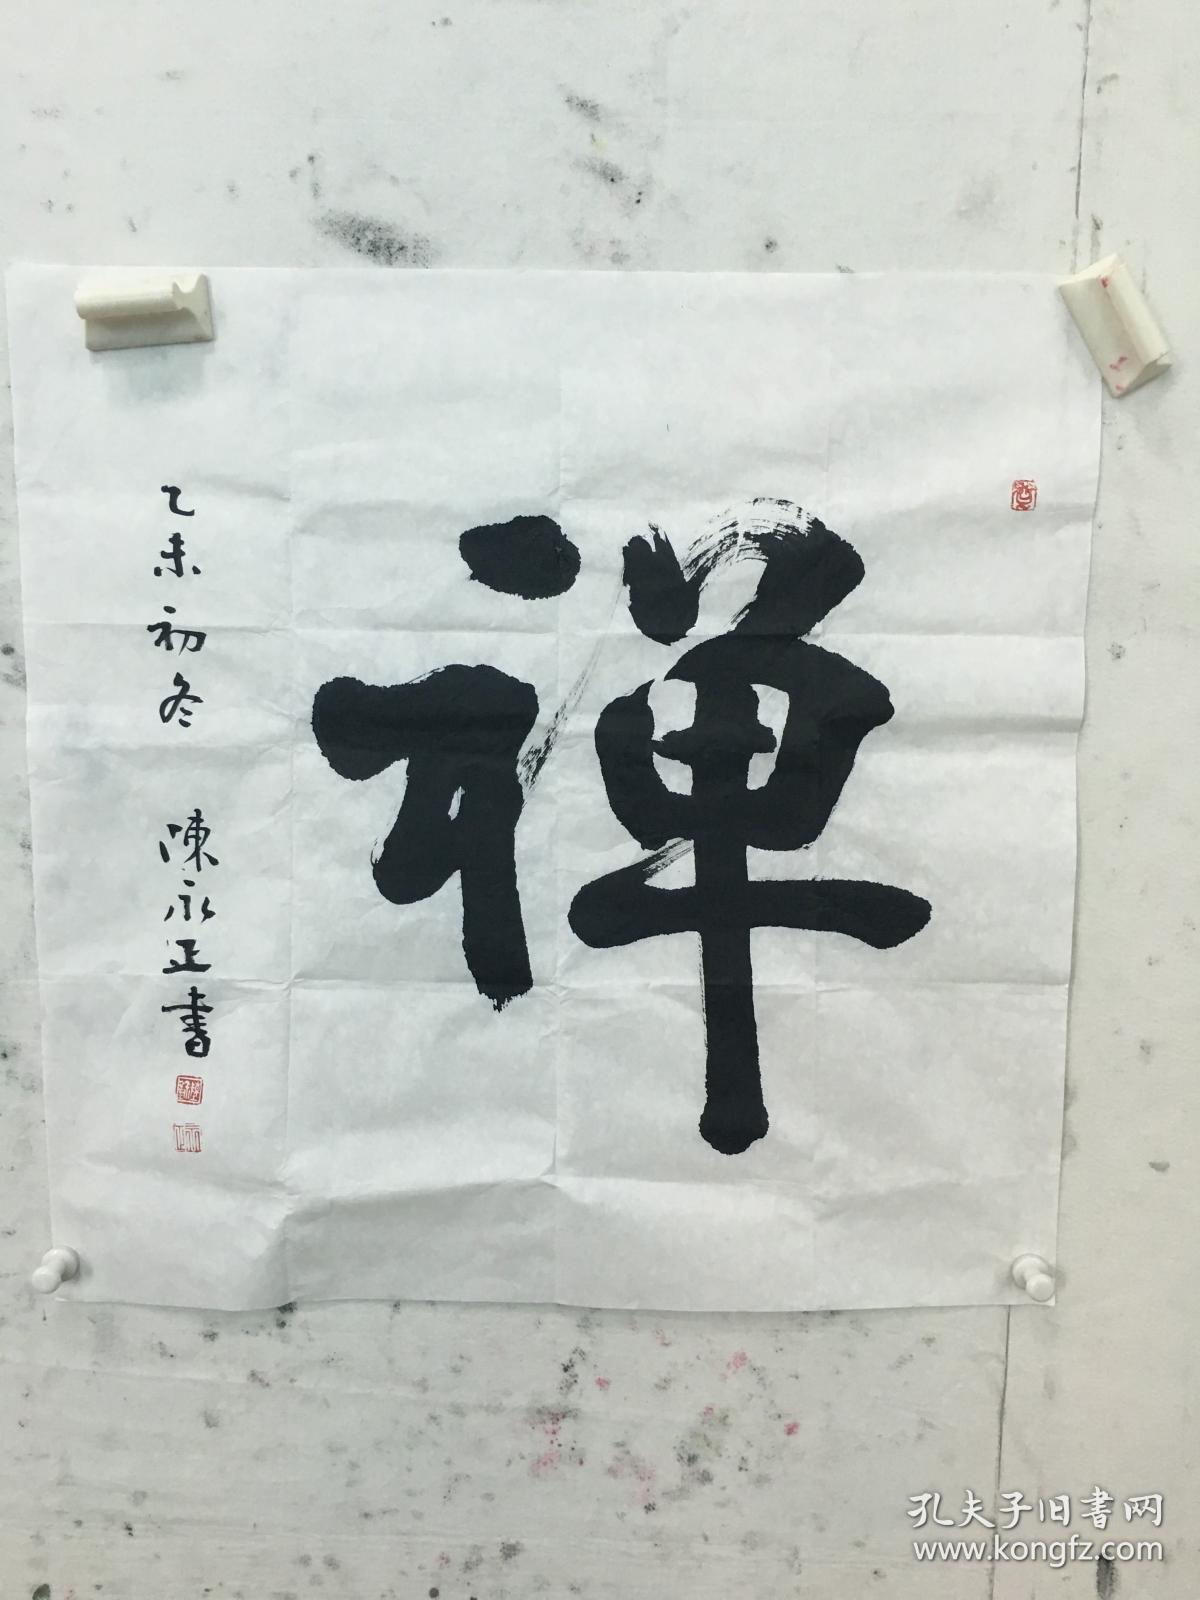 禅
乙未初冬 陳永正書
孔夫子旧書网
www.kongfz.com